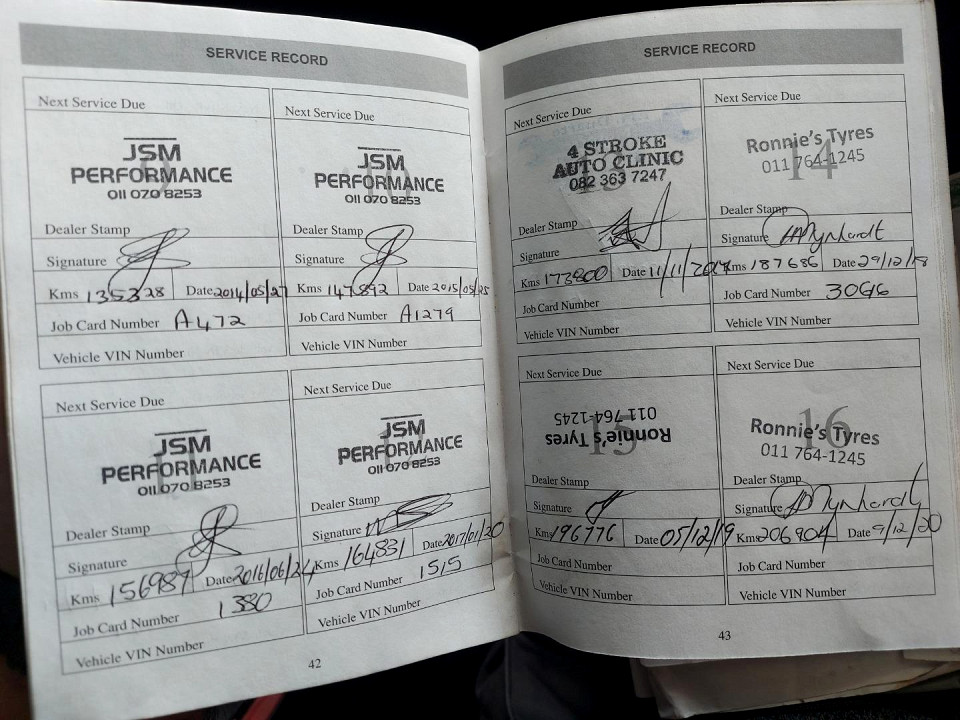 SERVICE RECORD
Next Service Due
9
JSM
PERFORMANCE
011 070 8253
Dealer Stamp
Signature
Kms 135328 Date 2014/05/27
Job Card Number A472
Vehicle VIN Number
Next Service Due
10
JSM
PERFORMANCE
011 070 8253
Dealer Stamp
Signature
Kms 147892 Date 2015/05/25
Job Card Number A1279
Vehicle VIN Number
Next Service Due
11
JSM
PERFORMANCE
011 070 8253
Dealer Stamp
Signature
Kms 156987 Date 2016/06/24
Job Card Number 1380
Vehicle VIN Number
Next Service Due
JSM
PERFORMANCE
011 070 8253
Dealer Stamp
Signature
Kms 164831 Date 2017/01/20
Job Card Number 1515
Vehicle VIN Number
42
SERVICE RECORD
Next Service Due
13
4 STROKE
AUTO CLINIC
082 363 7247
Dealer Stamp
Signature
Kms 173800 Date 11/11/2017
Job Card Number
Vehicle VIN Number
Next Service Due
14
Ronnie's Tyres
011 764-1245
Dealer Stamp
Signature
Kms 187686 Date 29/12/18
Job Card Number
Vehicle VIN Number
Next Service Due
15
Ronnie's Tyres
011 764-1245
Dealer Stamp
Signature
Kms 196776 Date 05/12/19
Job Card Number
Vehicle VIN Number
Next Service Due
16
Ronnie's Tyres
011 764-1245
Dealer Stamp
Signature
Kms 206904 Date 9/12/20
Job Card Number
Vehicle VIN Number
43